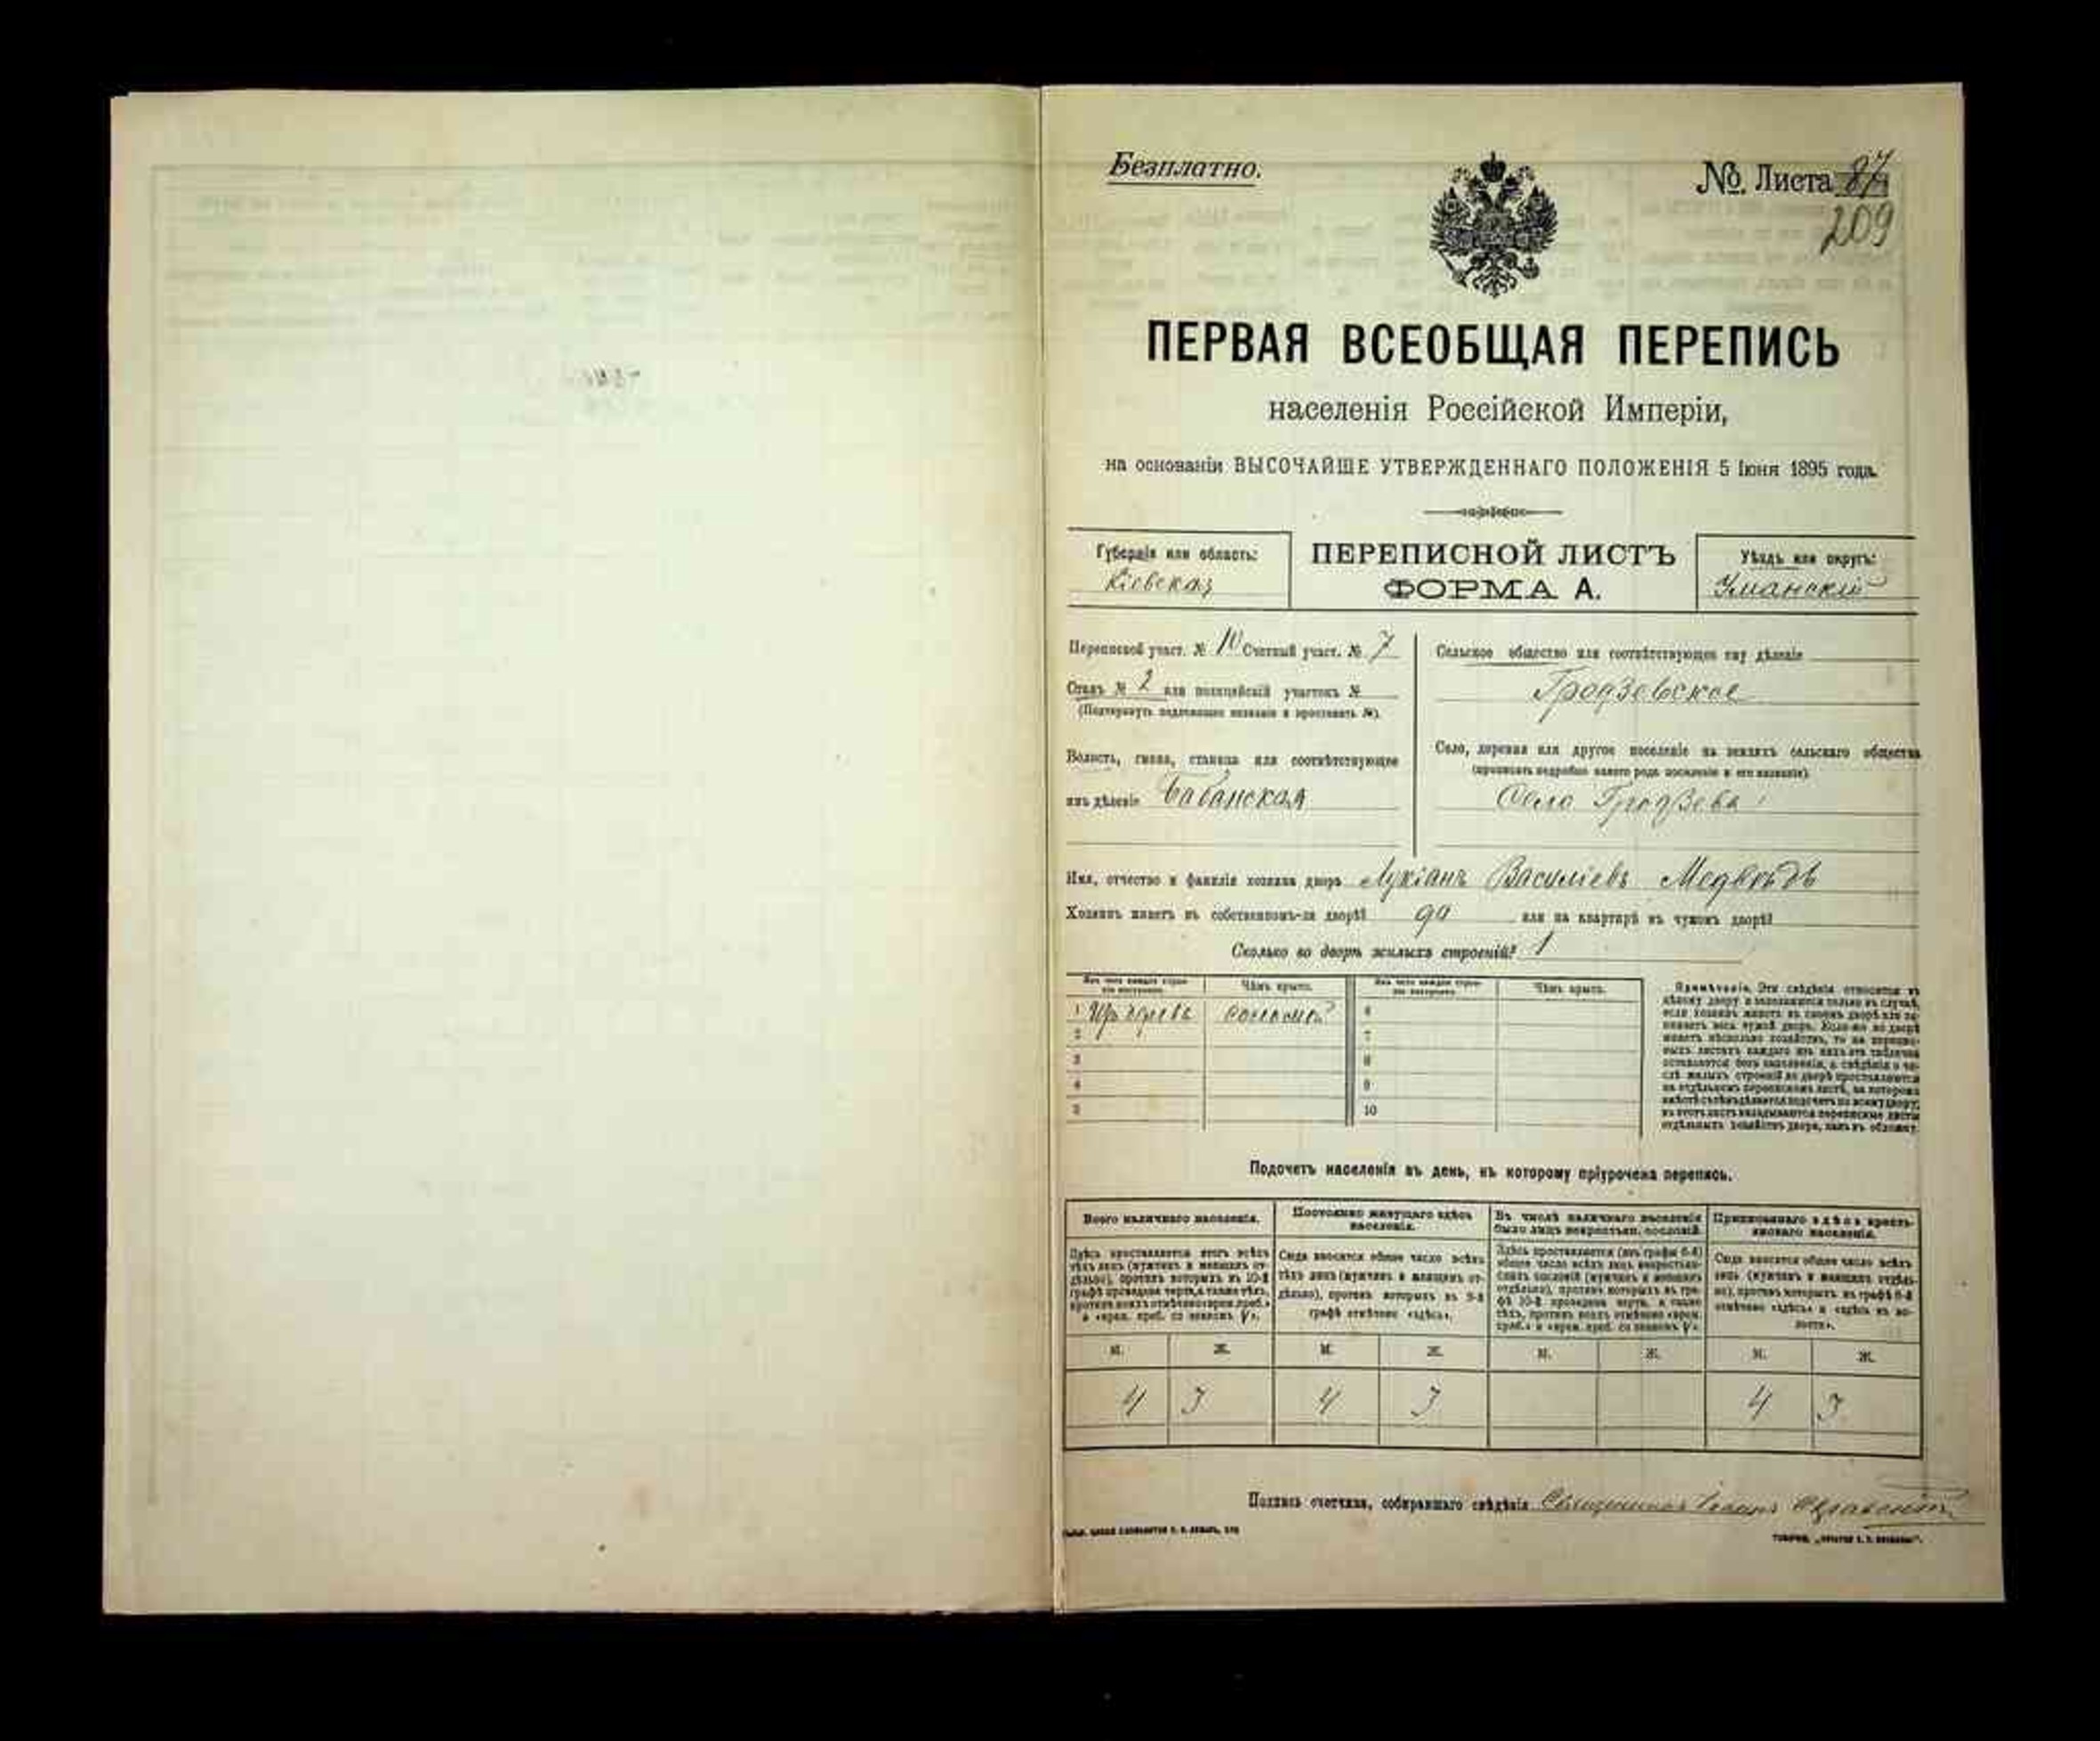 Безплатно.
№ Листа 87
209
ПЕРВАЯ ВСЕОБЩАЯ ПЕРЕПИСЬ
населенія Россійской Имперіи,
на основаніи ВЫСОЧАЙШЕ УТВЕРЖДЕННАГО ПОЛОЖЕНІЯ 5 Іюня 1895 года.
Губернія или область:
Кіевская
ПЕРЕПИСНОЙ ЛИСТЪ
ФОРМА А.
Уѣздъ или округъ:
Уманскій
Переписной участ. № 10 Счетный участ. № 7
Станъ № 2 или полицейскій участокъ №
(Подчеркнуть подлежащее названіе и проставить №).
Волость, гмина, станица или соотвѣтствующее
имъ дѣленіе Бабанская
Сельское общество или соотвѣтствующее ему дѣленіе
Гродзевское
Село, деревня или другое поселеніе на земляхъ сельскаго общества
(прописать подробно какого рода поселеніе и его названіе)
Село Гродзева
Имя, отчество и фамилія хозяина двора Лукіанъ Василіевъ Медвѣдь
Хозяинъ живетъ въ собственномъ-ли дворѣ? да или на квартирѣ въ чужомъ дворѣ?
Сколько во дворѣ жилыхъ строеній? 1
Изъ чего каждое строеніе построено.
Чѣмъ крыто.
Изъ чего каждое строеніе построено.
Чѣмъ крыто.
1 соломой 6
2 7
3 8
4 9
5 10
Примѣчаніе. Эти свѣдѣнія относятся къ
цѣлому двору и заполняются только въ случаѣ,
если хозяинъ живетъ въ своемъ дворѣ или за-
нимаетъ весь чужой дворъ. Если-же во дворѣ
живетъ нѣсколько хозяйствъ, то на перепис-
ныхъ листахъ каждаго изъ нихъ эта табличка
оставляется безъ заполненія, а свѣдѣнія о чи-
слѣ жилыхъ строеній во дворѣ проставляются
на отдѣльномъ переписномъ листѣ, на которомъ
вмѣстѣ съ тѣмъ дѣлается подсчетъ по всему двору;
въ этотъ листъ вкладываются переписные листы
отдѣльныхъ хозяйствъ двора, какъ въ обложку.
Подсчетъ населенія въ день, къ которому пріурочена перепись.
Всего наличнаго населенія.
Здѣсь проставляется итогъ всѣхъ
тѣхъ лицъ (мужчинъ и женщинъ от-
дѣльно), противъ которыхъ въ 10-й
графѣ проведена черта, а также тѣхъ,
противъ коихъ отмѣчено «врем. преб.»
и «врем. преб. со знакомъ V».
Постоянно живущаго здѣсь
населенія.
Сюда вносится общее число всѣхъ
тѣхъ лицъ (мужчинъ и женщинъ от-
дѣльно), противъ которыхъ въ 9-й
графѣ отмѣчено «здѣсь».
Въ числѣ наличнаго населенія
было лицъ некрестьян. сословій.
Здѣсь проставляется (изъ графы 6-й)
общее число всѣхъ лицъ некрестьян-
скихъ сословій (мужчинъ и женщинъ
отдѣльно), противъ которыхъ въ гра-
фѣ 10-й проведена черта, а также
тѣхъ, противъ коихъ отмѣчено «врем.
преб.» и «врем. преб. со знакомъ V».
Приписаннаго здѣсь кресть-
янскаго населенія.
Сюда вносится общее число всѣхъ
лицъ (мужчинъ и женщинъ отдѣль-
но), противъ которыхъ въ графѣ 8-й
отмѣчено «здѣсь» и «здѣсь въ во-
лости».
М. Ж. М. Ж. М. Ж. М. Ж.
4 3 4 3 4 3
Подпись счетчика, собиравшаго свѣдѣнія Священникъ Іоаннъ